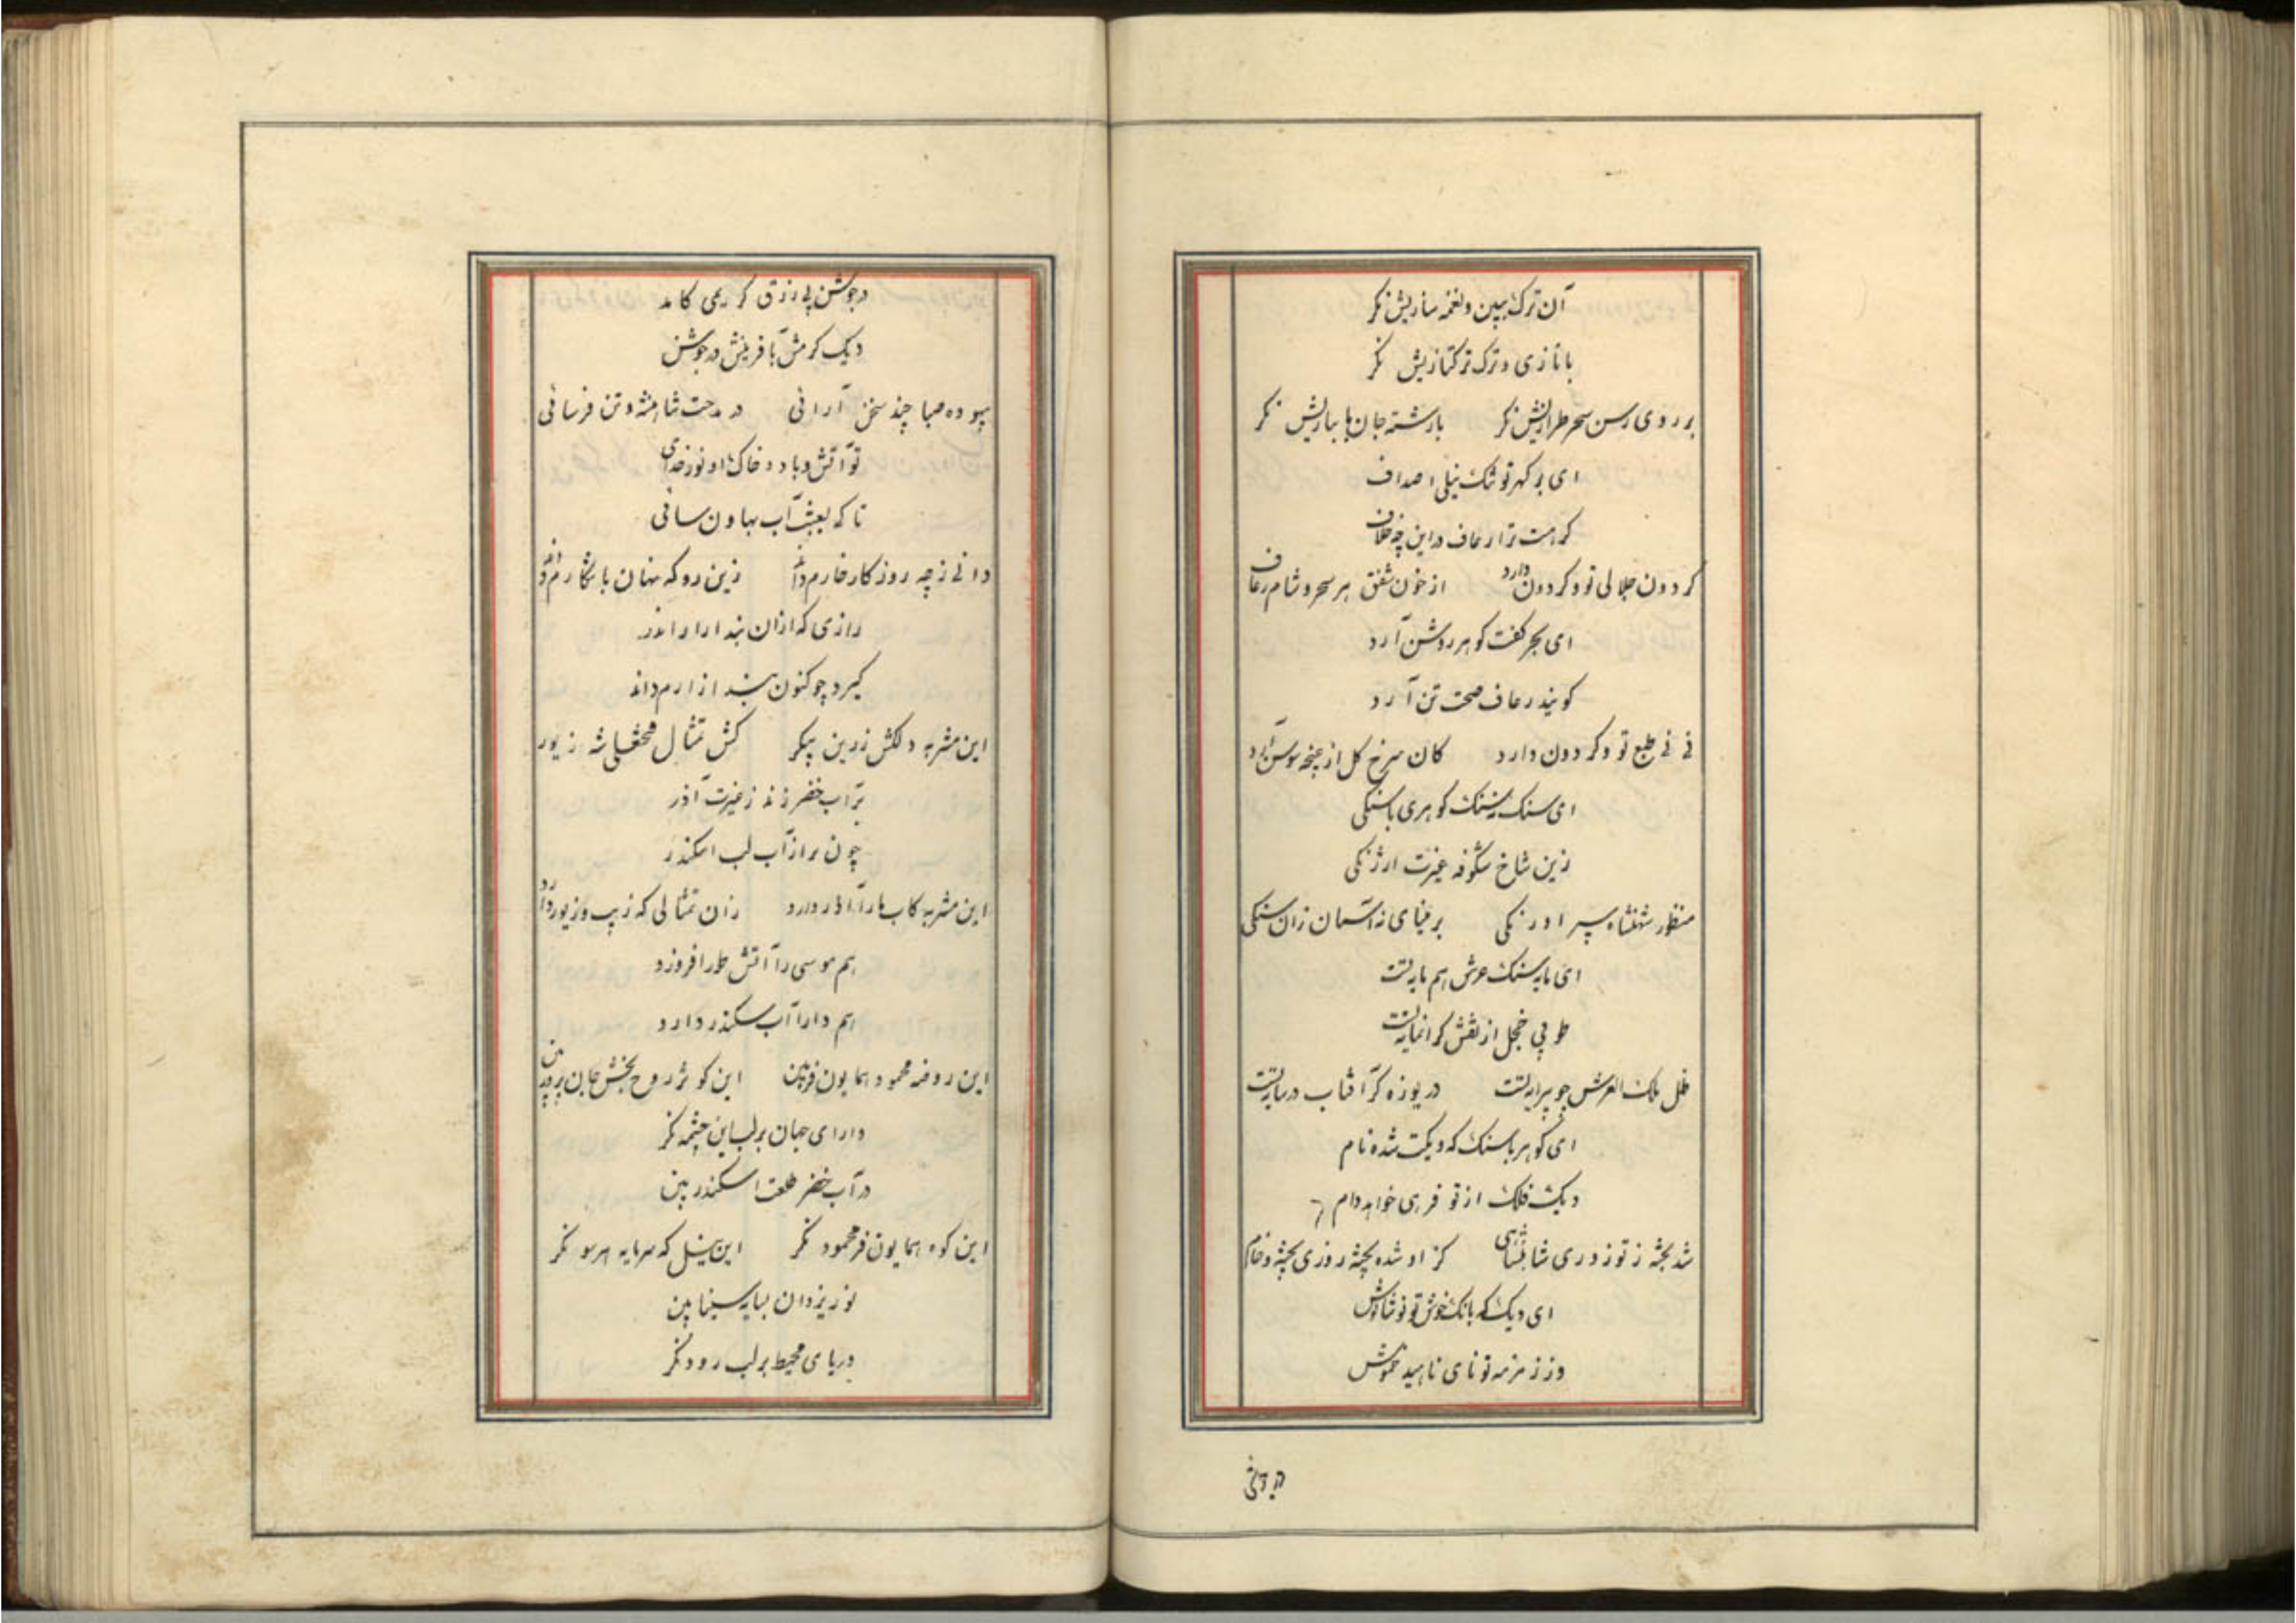 آن ترک ببین و نغمه سازیش نکر
با تازی و ترک ترکتازیش نکر
بر روی رسن سحر طرازیش نکر بارشته جان ها بازیش نکر
ای بر کهر تو تنک نیلی اصداف
کر هست ترا رعاف در این چه خلاف
کردون جلالی تو و کردون دارد از خون شفق هر سحر و شام رعاف
ای بحر کفت کوهر روشن آرد
کویند رعاف صحت تن آرد
نی نی طبع تو و کردون دارد کان سرخ کل از غنچه سوسن آرد
ای سنک نه سنک کوهری یا سنکی
زین شاخ شکوفه غیرت ارژنکی
منظور شهنشاه سپهر اورنکی بر مینای نه آسمان زان سنکی
ای پایه سنک عرش هم پایه تست
طوبی خجل از نقش کرانمایه تست
ظل ملک العرش چو پیرایه تست دریوزه کر آفتاب در سایه تست
ای کوهر یا سنک که دیکت شده نام
دیک فلک از تو فرهی خواهد وام
شد پخته ز تو ز وری شاهنشاهی کز او شده پخته روزی پخته و خام
ای دیک که بانک خوش تو نوشانوش
وز زمزمه تو نای ناهید خموش
در جوشش پی رزق کریمی کامد
دیک کرمش بآفرینش در جوشش
بیهوده صبا چند سخن آرائی در مدحت شاهنشه و تن فرسائی
تو آتش و باد و خاک او نور خدای
تا که بعبث آب بهاون سائی
دانی ز چه روزکار خارم داند زین رو که نهان با نکارم داند
رازی که ازان بند ارار اندر
کیرد چو کنون بند از ارم داند
این مشربه دلکش زرین پیکر کش تمثال فتحعلی شه زیور
بر آب خضر زند ز غیرت آذر
چون برد از آب لب اسکندر
این مشربه کاب را آذر دارد زان تمثالی که زیب و زیور دارد
هم موسی را آتش طور افروزد
هم دارا آب سکندر دارد
این روضه محمود همایون فر بین این کوثر روح بخش جان پرور بین
دارای جهان بر لب این چشمه نکر
در آب خضر طلعت اسکندر بین
این کوه همایون فر محمود نکر این نیل که سرمایه هر سو نکر
نور یزدان بسایه سینا بین
دریای محیط بر لب رود نکر